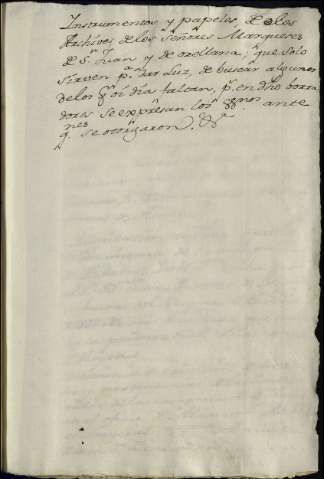 Instrumentos y papeles, de los
Archivos de los señores Marqueses
de Sn Juan y de orellana; que solo
sirven pa dar Luz, de buscar algunos
de los q oi dia faltan, p. en dho borra
dores se expresan los ante
q. se otorgaron. &a